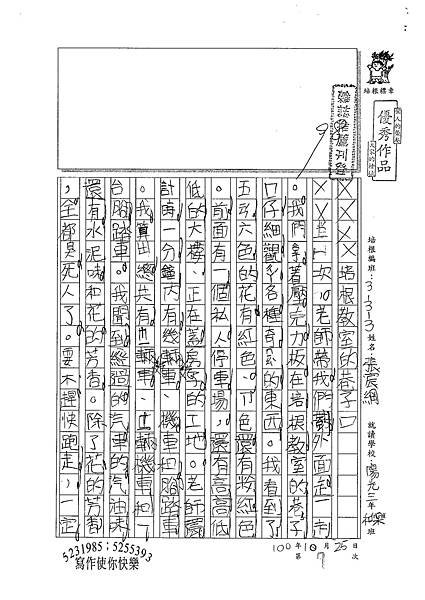 培根楷章
優秀作品
培根編班：313 姓名：張宸綱 就讀學校：陽光三年和樂班
培根教室的巷子口
上一次，老師帶我們
。我們拿著壓克力板在培根教室的巷子
口仔細觀
的東西。我看到了
五顏六色的花有紅色、
色還有粉紅色
。前面有一個私人停車場，還有高高低
低的大樓、正在蓋房子的工地。老師還
計時一分鐘內有幾輛車、機車和腳踏車
。我算出總共有
輛車、
輛機車和一
台腳踏車。我聞到經過的汽車的汽油味
還有水泥味和花的芳香。除了花的芳香
，全都臭死人了。要不趕快跑走，一定
100年10月25日
第7次
5231985；5255393
寫作使你快樂